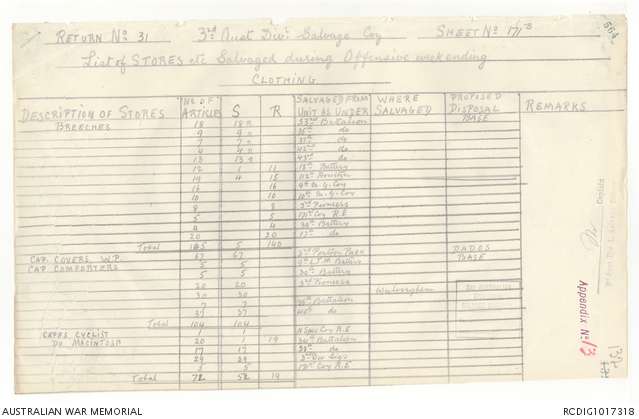 564
RETURN No 31 3rd Aust Div. Salvage Coy SHEET No 171B
List of STORES etc Salvaged during Offensive week ending
CLOTHING
DESCRIPTION OF STORES No OF ARTICLES S R SALVAGED FROM UNIT AS UNDER WHERE SALVAGED PROPOSED DISPOSAL REMARKS
BREECHES 18 18 33rd Battalion BASE
9 9 do
7 7 do
4 4 42nd do
13 13 43rd do
12 1 11 Battery
19 4 15 Howitzer
16 16 9th M.G. Coy
10 10 10th M.G. Coy
8 8 3rd Pioneers
5 5 171 Coy R.E
4 4 30th Battery
20 20 17th do
Total 145 5 140
CAP. COVERS. W.P. 67 67 DADOS
CAP COMFORTERS 5 5 9th L.T.M. Battery BASE
5 5 30th Battery
20 20 3rd Pioneers
30 30
7 7 Battalion
37 37 do
Total 104 104
CAPES CYCLIST 1 1 Coy R.E
Do MACINTOSH 20 1 19 34th Battalion
17 17 do
29 29 3rd Div Sigs
5 5 Coy R.E
Total 72 52 19
Appendix No 13
AUSTRALIAN WAR MEMORIAL RCDIG1017318